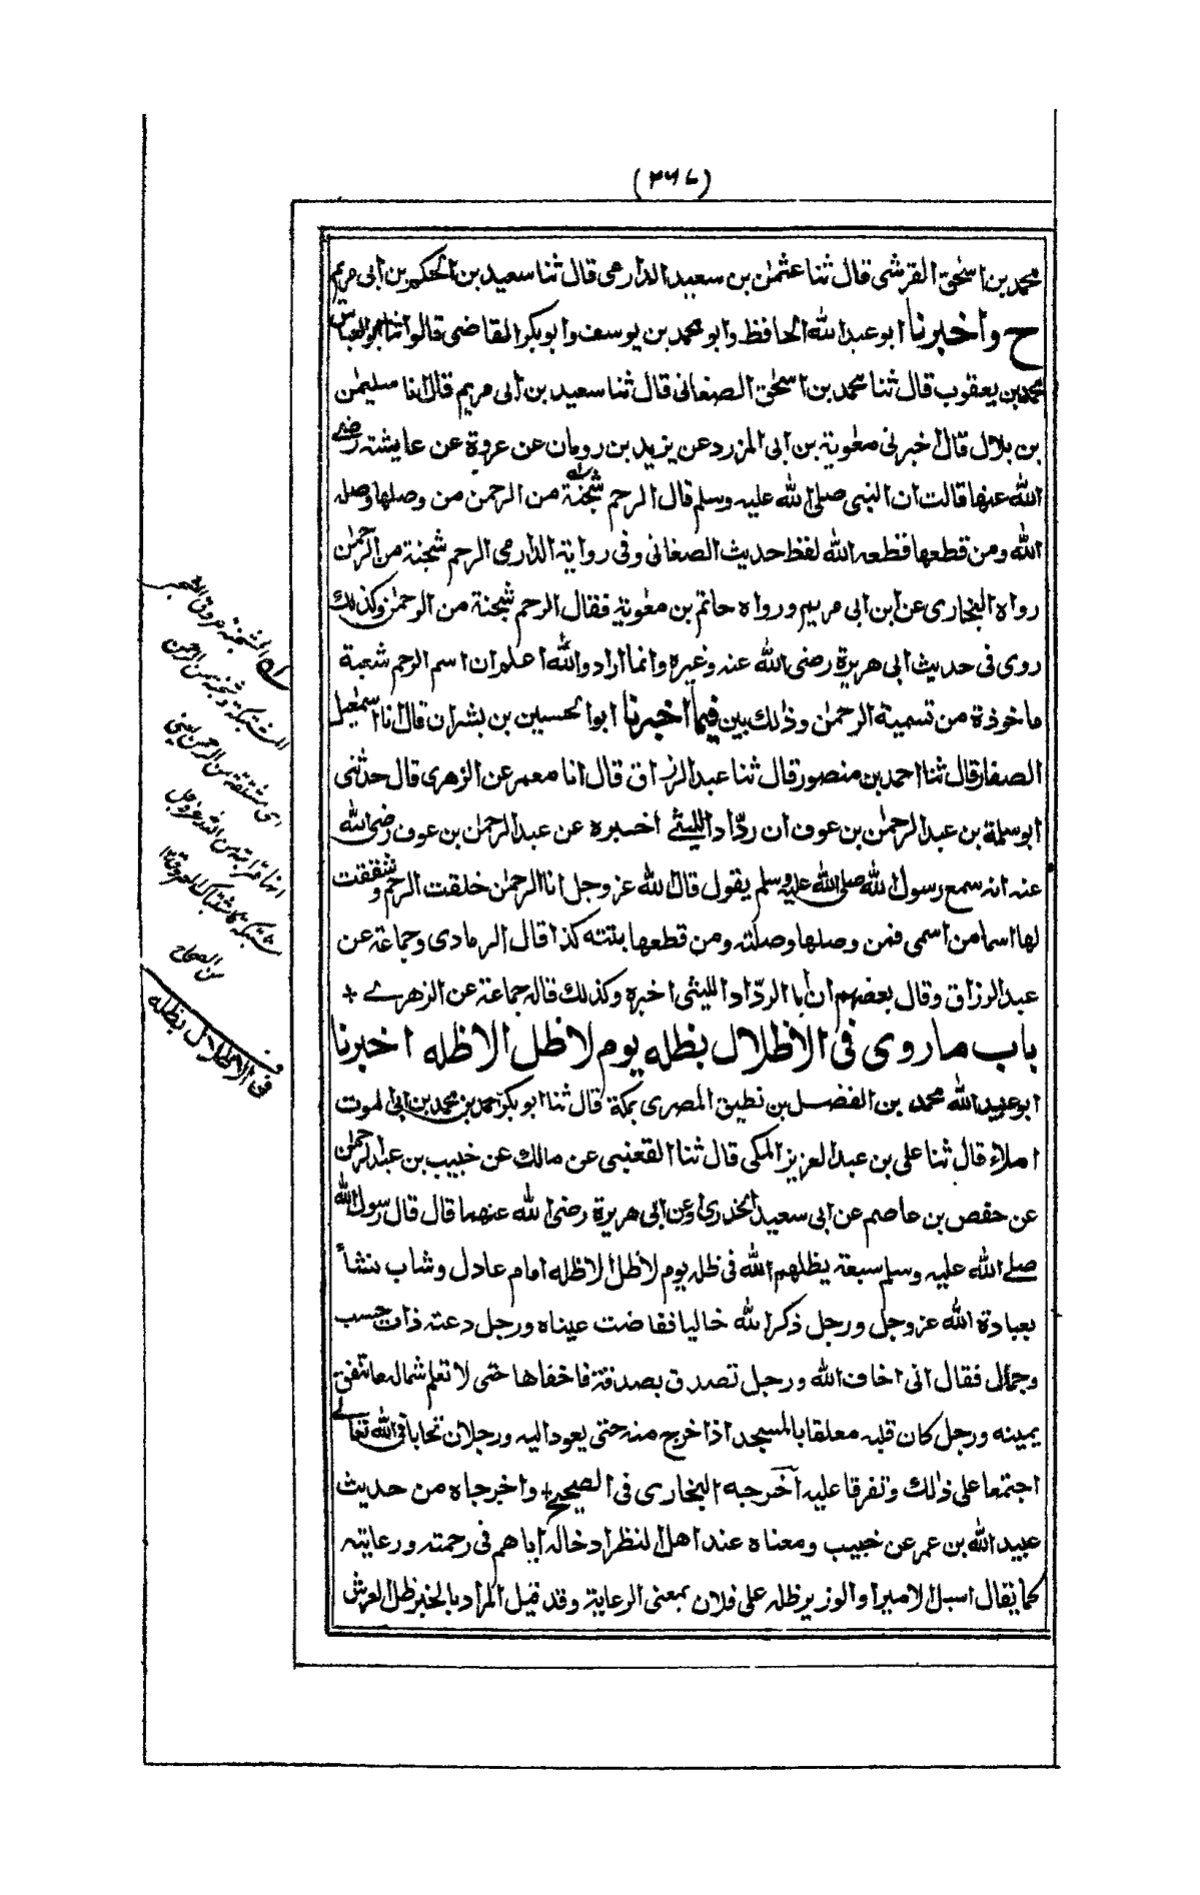 (۲۶۷)
محمد بن اسحٰق القرشى قال ثنا عثمٰن بن سعيد الدارمى قال ثنا سعيد بن الحكم بن ابى مريم
ح واخبرنا ابو عبد الله الحافظ وابو محمد بن يوسف وابو بكر القاضى قالوا ثنا ابو العباس
محمد بن يعقوب قال ثنا محمد بن اسحٰق الصغانى قال ثنا سعيد بن ابى مريم قال انا سليمٰن
بن بلال قال اخبرنى معٰوية بن ابى المزرد عن يزيد بن رومان عن عروة عن عايشة رضى
الله عنها قالت ان النبى صلى الله عليه وسلم قال الرحم شجنة من الرحمن من وصلها وصله
الله ومن قطعها قطعه الله لفظ حديث الصغانى وفى رواية الدارمى الرحم شجنة من الرحمٰن
رواه البخارى عن ابن ابى مريم ورواه حاتم بن معٰوية فقال الرحم شجنة من الرحمٰن وكذلك
روى فى حديث ابى هريرة رضى الله عنه وغيره وانما اراد والله اعلم ان اسم الرحم شعبة
ماخوذة من تسمية الرحمٰن وذلك بين فيما اخبرنا ابو الحسين بن بشران قال انا اسمٰعيل
الصفار قال ثنا احمد بن منصور قال ثنا عبد الرزاق قال انا معمر عن الزهرى قال حدثنى
ابو سلمة بن عبد الرحمٰن بن عوف ان ردّاد الليثے اخبره عن عبد الرحمٰن بن عوف رضى الله
عنه انه سمع رسول الله صلى الله عليه وسلم يقول قال الله عز وجل انا الرحمٰن خلقت الرحم وشققت
لها اسما من اسمى فمن وصلها وصلته ومن قطعها بتته كذا قال الرمادى وجماعة عن
عبد الرزاق وقال بعضهم ان ابا الردّاد الليثى اخبره وكذلك قاله جماعة عن الزهرے +
باب ما روى فى الاظلال بظله يوم لا ظل الا ظله اخبرنا
ابو عبد الله محمد بن الفضل بن نظيق المصرى بمكة قال ثنا ابو بكر احمد بن محمد بن ابى الموت
املاء قال ثنا على بن عبد العزيز المكى قال ثنا القعنبى عن مالك عن خبيب بن عبد الرحمٰن
عن حفص بن عاصم عن ابى سعيد الخدرى او عن ابى هريرة رضى الله عنهما قال قال رسول الله
صلے الله عليه وسلم سبعة يظلهم الله فى ظله يوم لا ظل الا ظله امام عادل وشاب نشأ
بعبادة الله عز وجل ورجل ذكر الله خاليا ففاضت عيناه ورجل دعته ذات حسب
وجمال فقال انى اخاف الله ورجل تصدق بصدقة فاخفاها حتى لا تعلم شماله ما تنفق
يمينه ورجل كان قلبه معلقا بالمسجد اذا خرج منه حتى يعود اليه ورجلان تحابا فى الله تعالے
اجتمعا على ذلك وتفرقا عليه اخرجه البخارى فى الصحيح واخرجاه من حديث
عبيد الله بن عمر عن خبيب ومعناه عند اهل النظر ادخاله اياهم فى رحمته ورعايته
كما يقال اسبل الامير او الوزير ظله على فلان بمعنى الرعاية وقد قيل المراد بالخبر ظل العرش
الشجنة عروق الشجر
المشتبكة وشجنة من الرحمن
اى مشتقة من الرحمن يعنى
انها قرابة من الله عز وجل
مشتبكة كاشتباك العروق ١٢
من الصحاح
فى الاظلال بظله